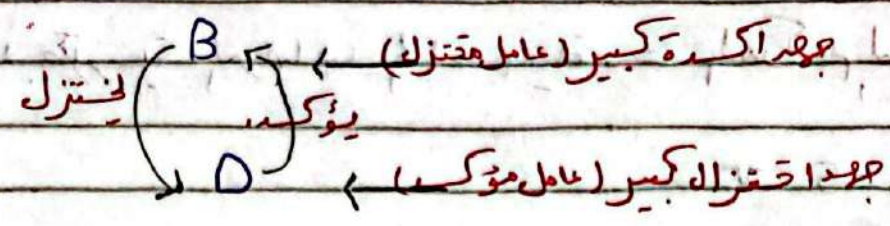 جهد اكسدة كبير (عامل مختزل) ← B
يختزل يؤكسد
جهد اختزال كبير (عامل مؤكسد) ← D